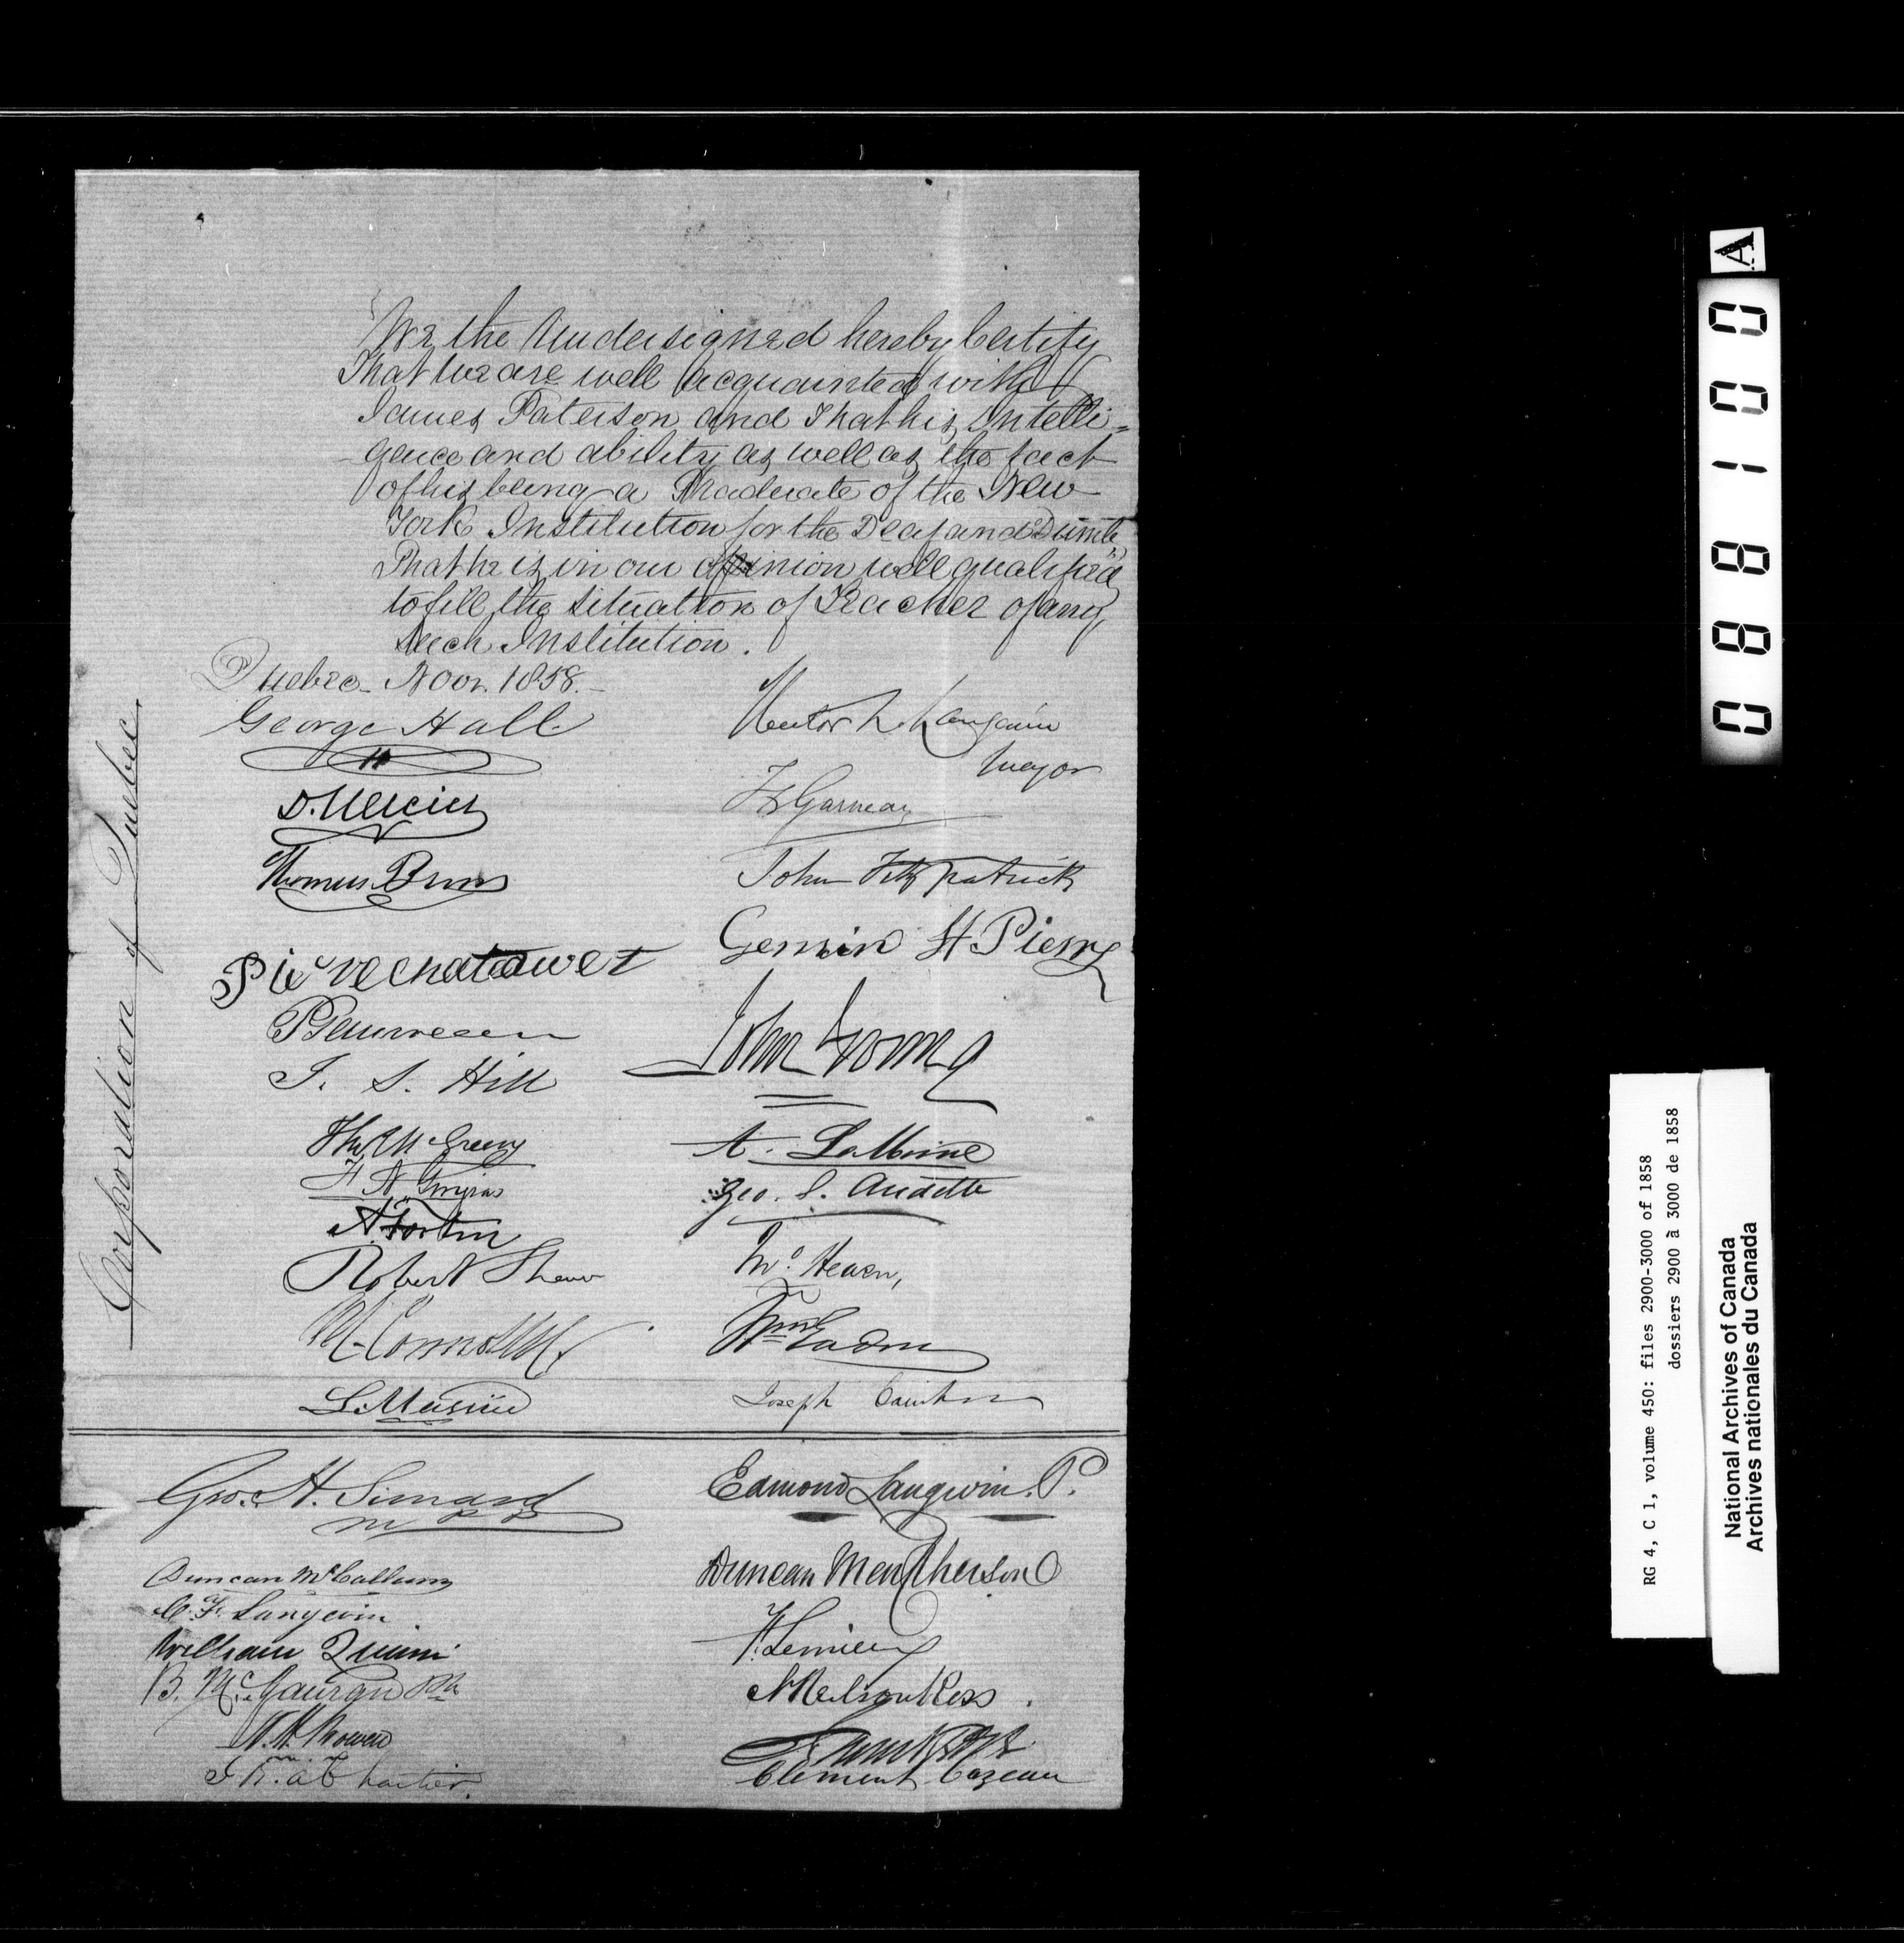 We the Undersigned hereby Certify
That we are well acquainted with
James Paterson and That his Intelli=
gence and ability as well as the fact
of his being a Graduate of the New
York Institution for the Deaf and Dumb
That he is in our opinion well qualified
to fill the situation of Teacher of any
such Institution.
Quebec Novr. 1858.
George Hall
Hector L. Langevin
Mayor
D. Mercier
Fs Garneau
Thomas
John Fitzpatrick
Germin St Pierre
John
J. S. Hill
A. LeMoine
Geo. L. Audette
A. Fortin
Robert Shaw
Hearn,
Wm
L. Masuire
Joseph
Corporation of Quebec.
Geo. H. Simard
M P P
Edmond Langevin. P.
Duncan McCallum
Duncan MacPherson
C. F. Langevin
F. Lemieux
William Quinn
B. McGauran
N. H. Bowen
Clement Cazeau
0 8 8 1 0 0 A
RG 4, C 1, volume 450: files 2900-3000 of 1858
dossiers 2900 à 3000 de 1858
National Archives of Canada
Archives nationales du Canada